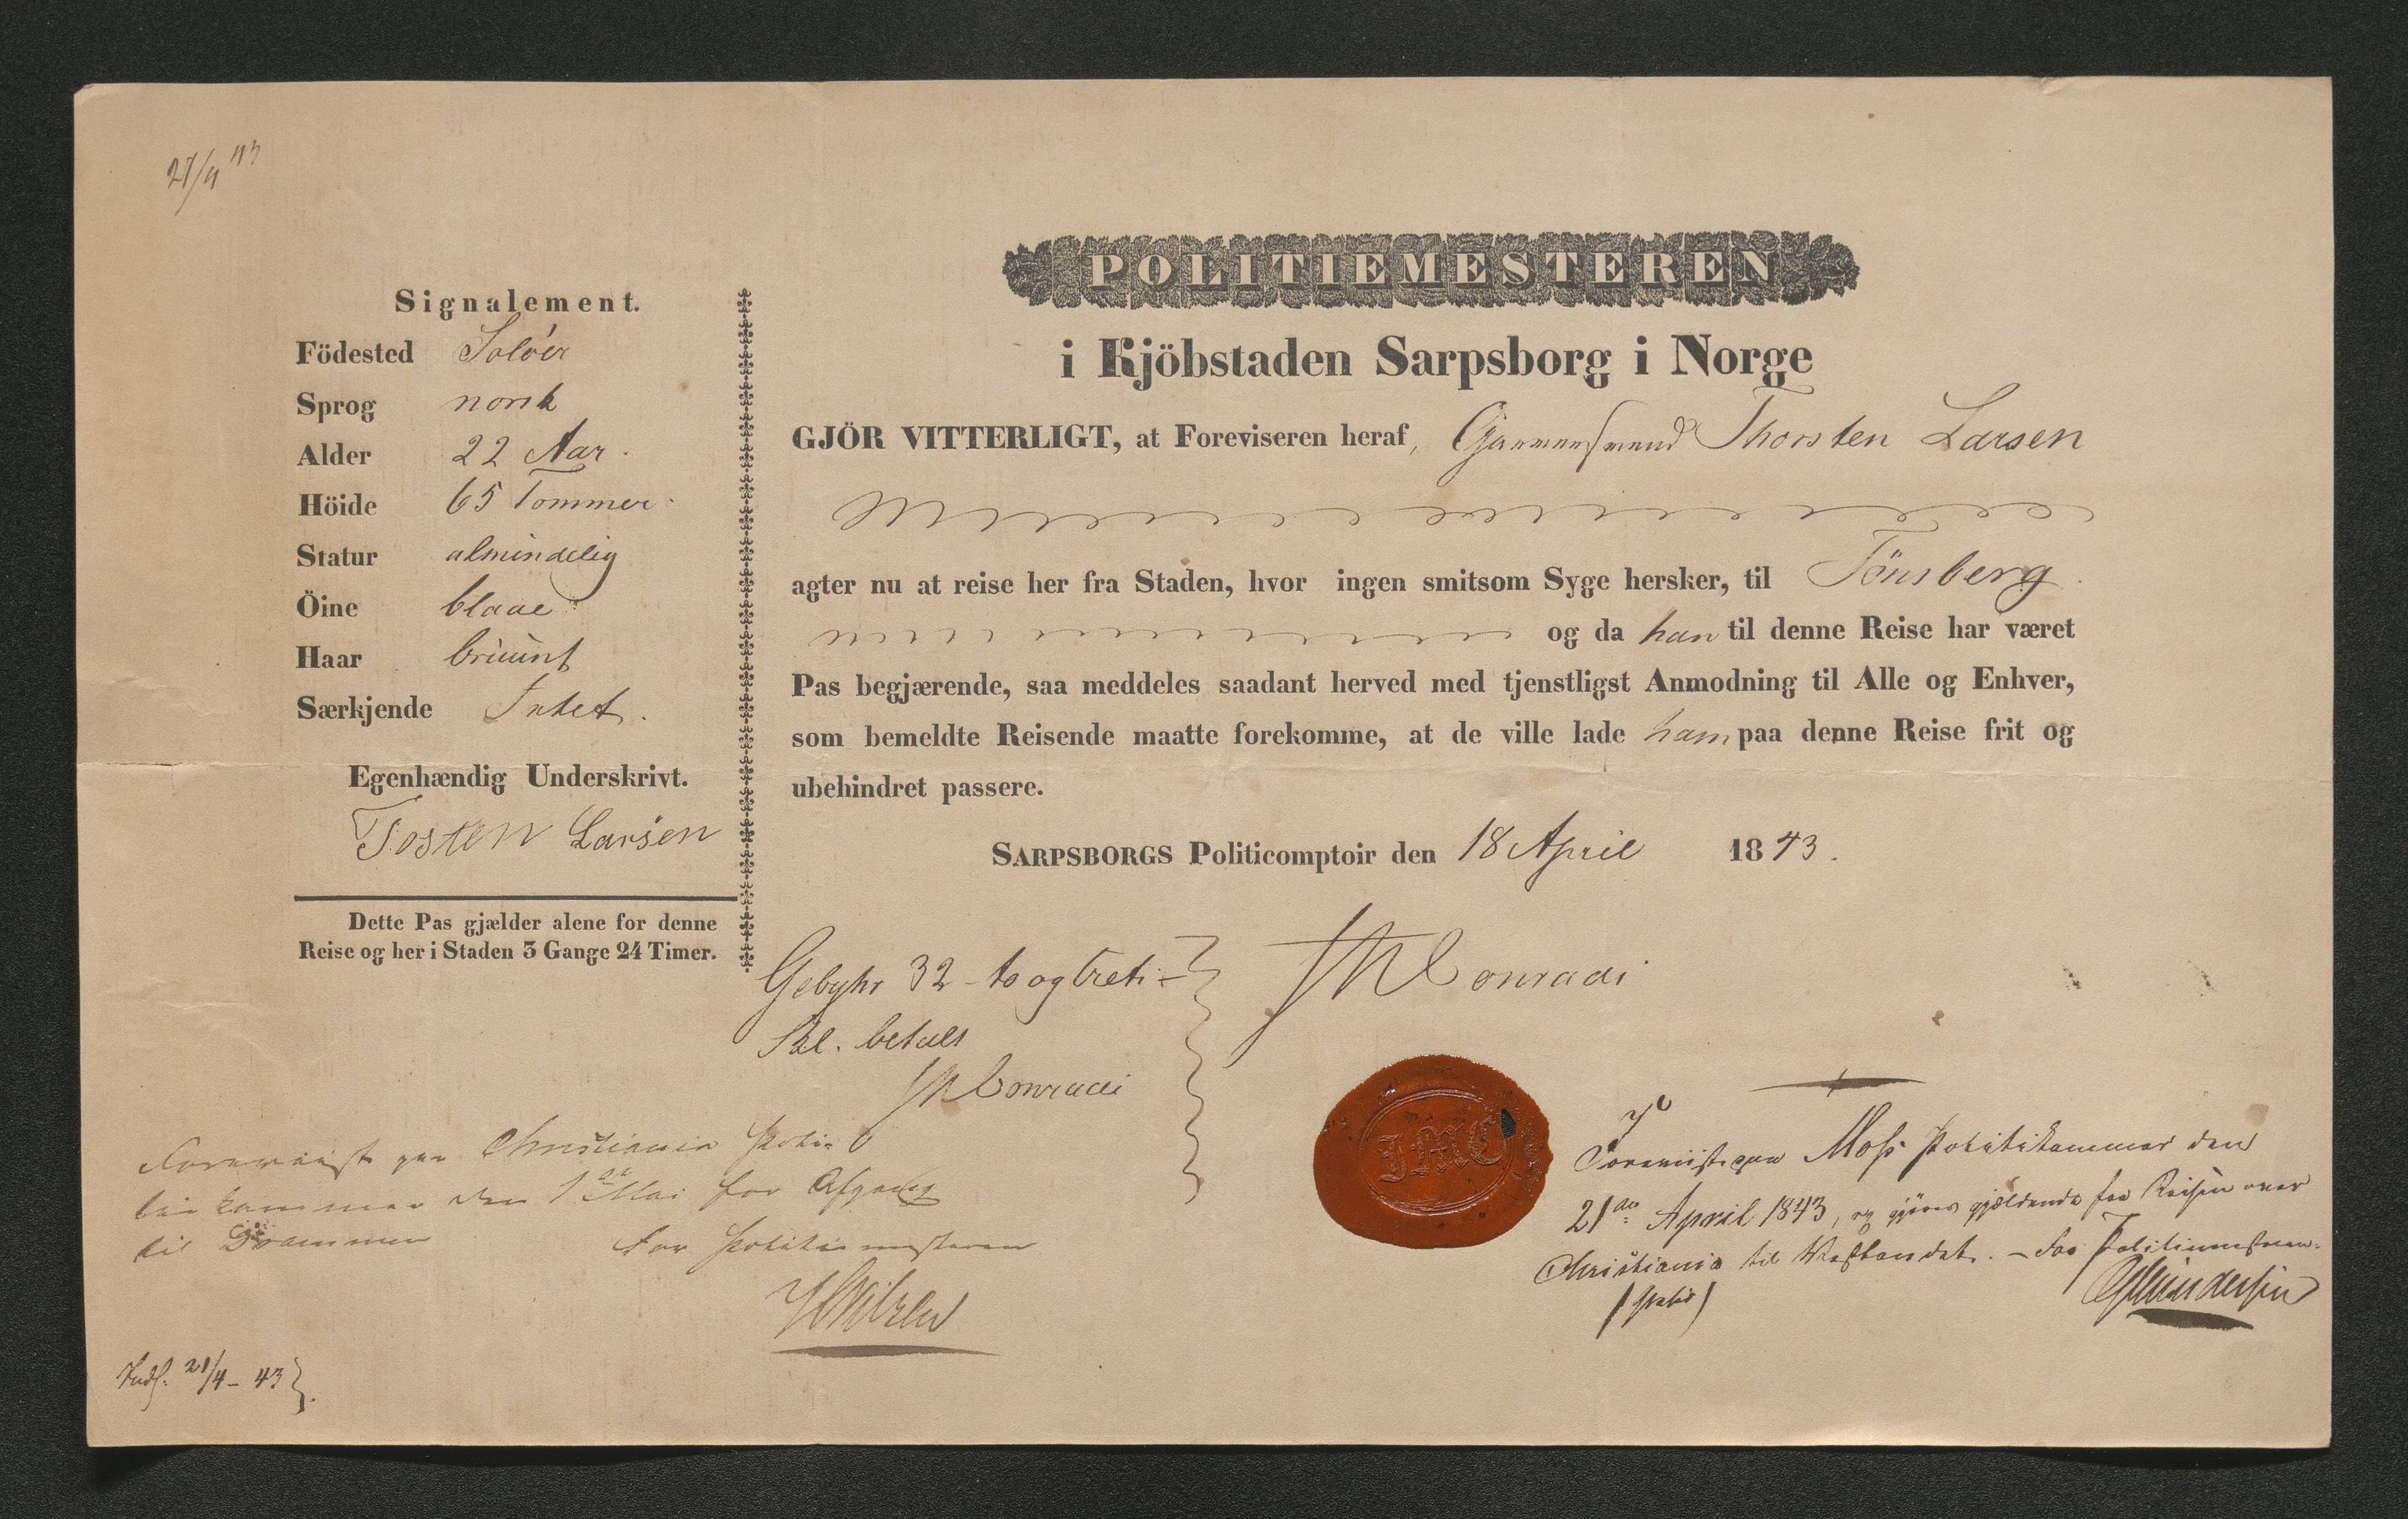 27/4 43
Signalement.
Födested Solöer
Sprog norsk
Alder 22 Aar.
Höide 65 Tommer.
Statur almindelig
Öine blaae
Haar bruunt
Særkjende Intet.
Egenhændig Underskrivt.
Tosten Larsen
Dette Pas gjælder alene for denne
Reise og her i Staden 3 Gange 24 Timer.
POLITIEMESTEREN
i Kjöbstaden Sarpsborg i Norge
GJÖR VITTERLIGT, at Foreviseren heraf, Thorsten Larsen
agter nu at reise her fra Staden, hvor ingen smitsom Syge hersker, til Tönsberg.
og da han til denne Reise har været
Pas begjærende, saa meddeles saadant herved med tjenstligst Anmodning til Alle og Enhver,
som bemeldte Reisende maatte forekomme, at de ville lade ham paa denne Reise frit og
ubehindret passere.
SARPSBORGS Politicomptoir den 18 April 1843.
Gebyhr 32 - to og treti -
Skl. betalt
JMConradi
JMConradi
JMC
Foreviist paa Moss Politikammer den
21de April 1843, og gjöres gjældende for Reisen over
Christiania til Vestlandet. - For Politimesteren.
Foreviist paa Christiania Poli-
tiekammer den 1ste Mai for Afgang
til Drammen
For Politiemesteren
Indf. 21/4 - 43